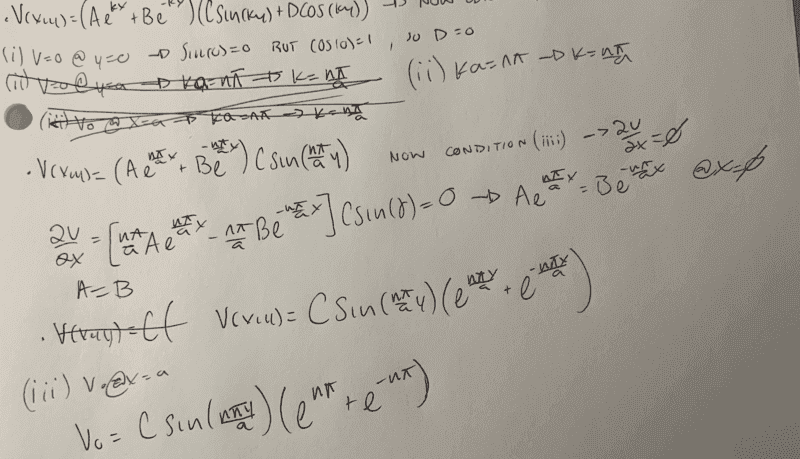 . V(x,y)=(Ae^{kx}+Be^{-ky})(Csin(ky)+Dcos(ky)) → NOW
(i) V=0 @ y=0 → sin(0)=0 BUT cos(0)=1, so D=0
(ii) V=0 @ y=a → ka=nπ → k=nπ/a (ii) ka=nπ → k=nπ/a
(iii) V₀ @ x=a → ka=nπ → k=nπ/a
. V(x,y)=(Ae^{nπ/a x}+Be^{-nπ/a x})Csin(nπ/a y) NOW CONDITION (iiii) → ∂V/∂x=0
∂V/∂x=[nπ/a Ae^{nπ/a x} - nπ/a Be^{-nπ/a x}]Csin(γ)=0 → Ae^{nπ/a x}=Be^{-nπ/a x} @x=0
A=B
. V(x,y)=C( V(x,y)=Csin(nπ/a y)(e^{nπx/a}+e^{-nπx/a})
(iii) V₀@x=a
V₀=Csin(nπy/a)(e^{nπ}+e^{-nπ})